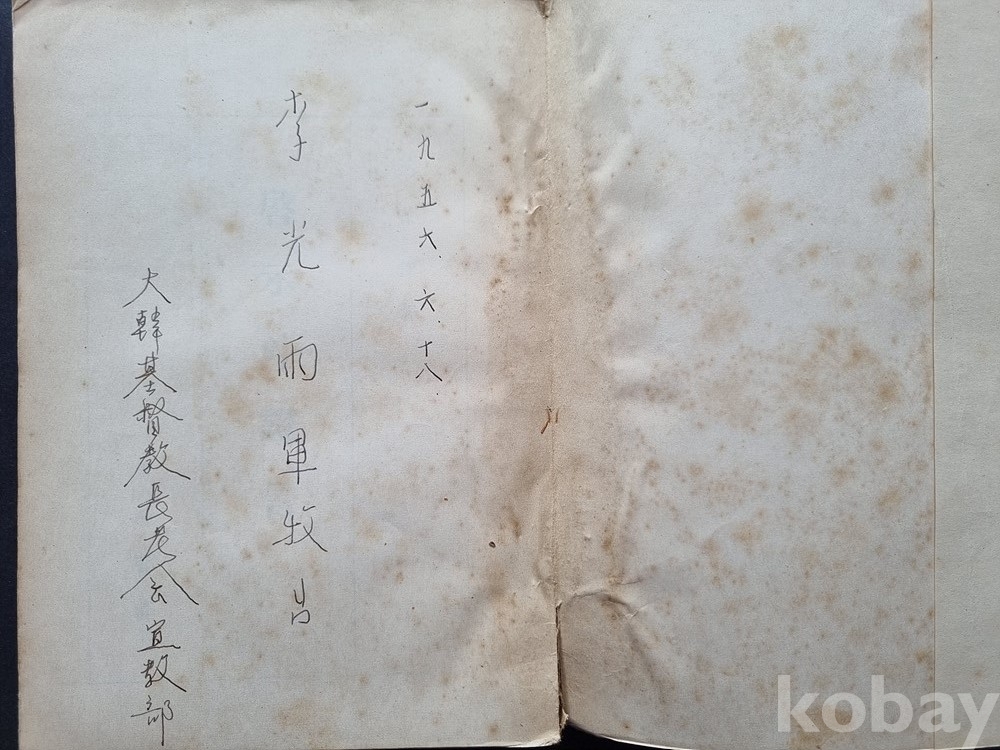 一九五六. 六. 十八
李光雨軍牧
大韓基督教長老会宣教部
kobay